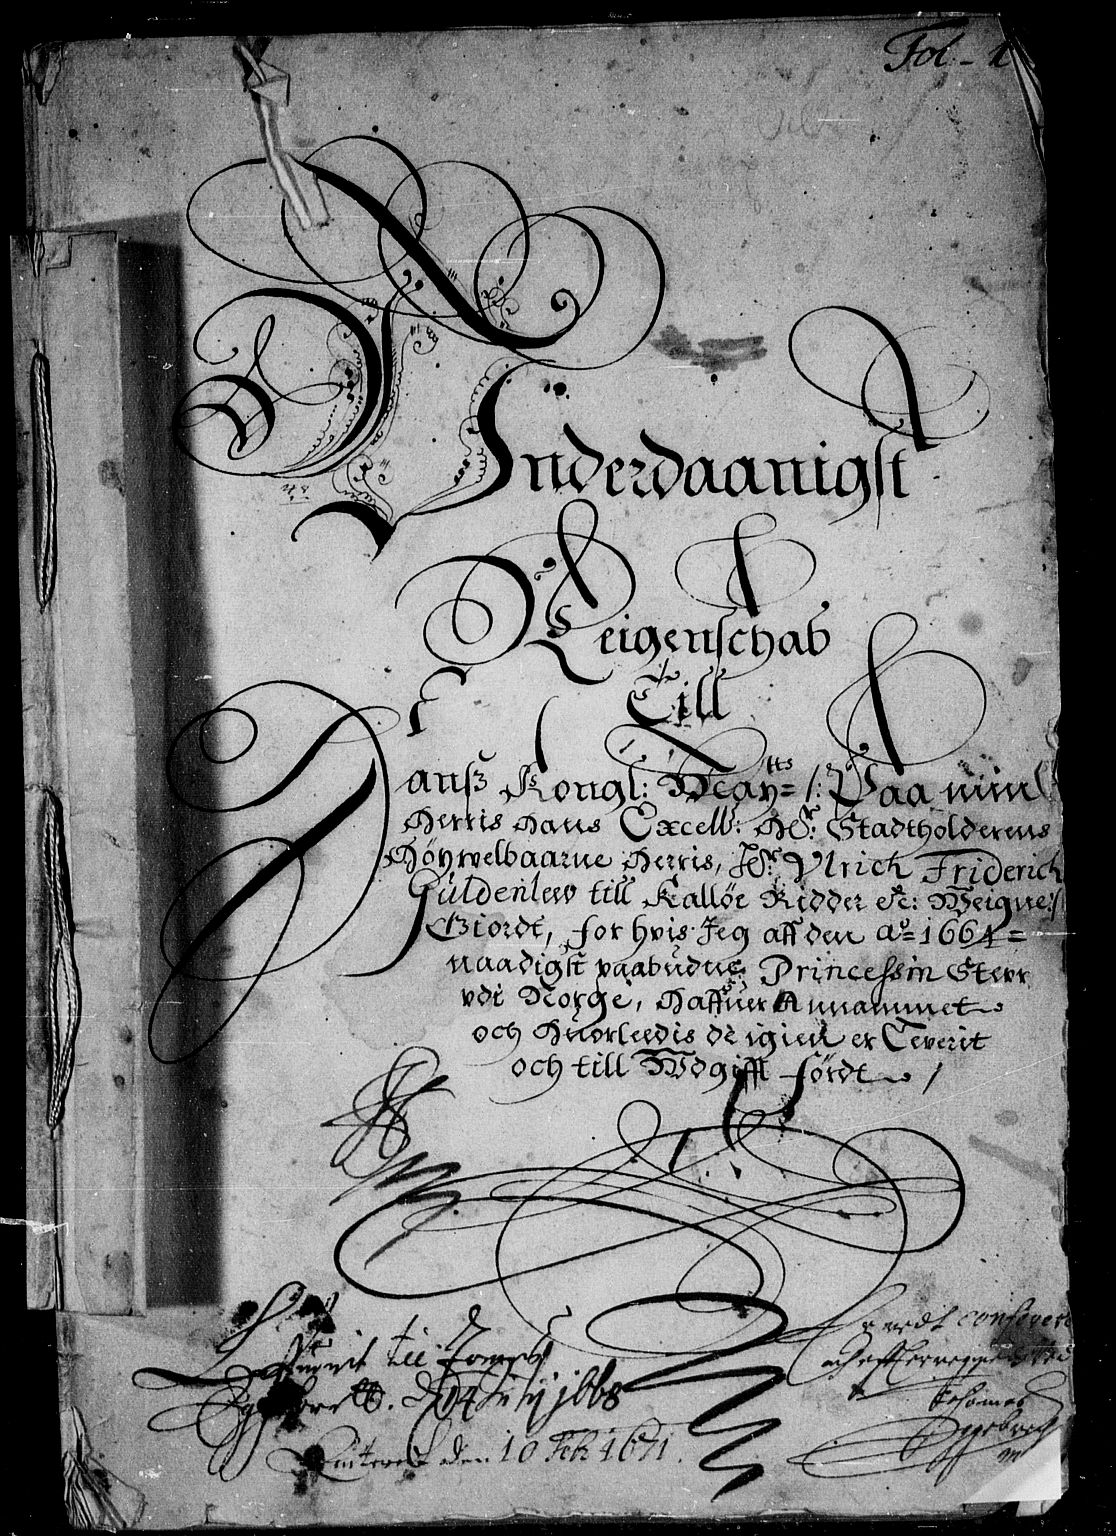 Fol. 1
Vnderdaanigst
Reigenschab
Till
Hanß Kongl: Mayts= /: Paa min
Herris Hans Excell: Hr: Stadtholderens
Höyvelbaarne Herris, Hr: Vlrich Friderich
Güldenlew till Kallöe Ridder etc: Weigne:/
Giordt, for hvis Jeg aff den Ao= 1664=
naadigst paabudne Princessin Steur
vdi Norge, Haffuer Annammet
och Huorleedis de igien er Leverit
och till Wdgifft fördt /
Leuerit till
den 14 July 1668
Quiteret den 10 Feb 1671.